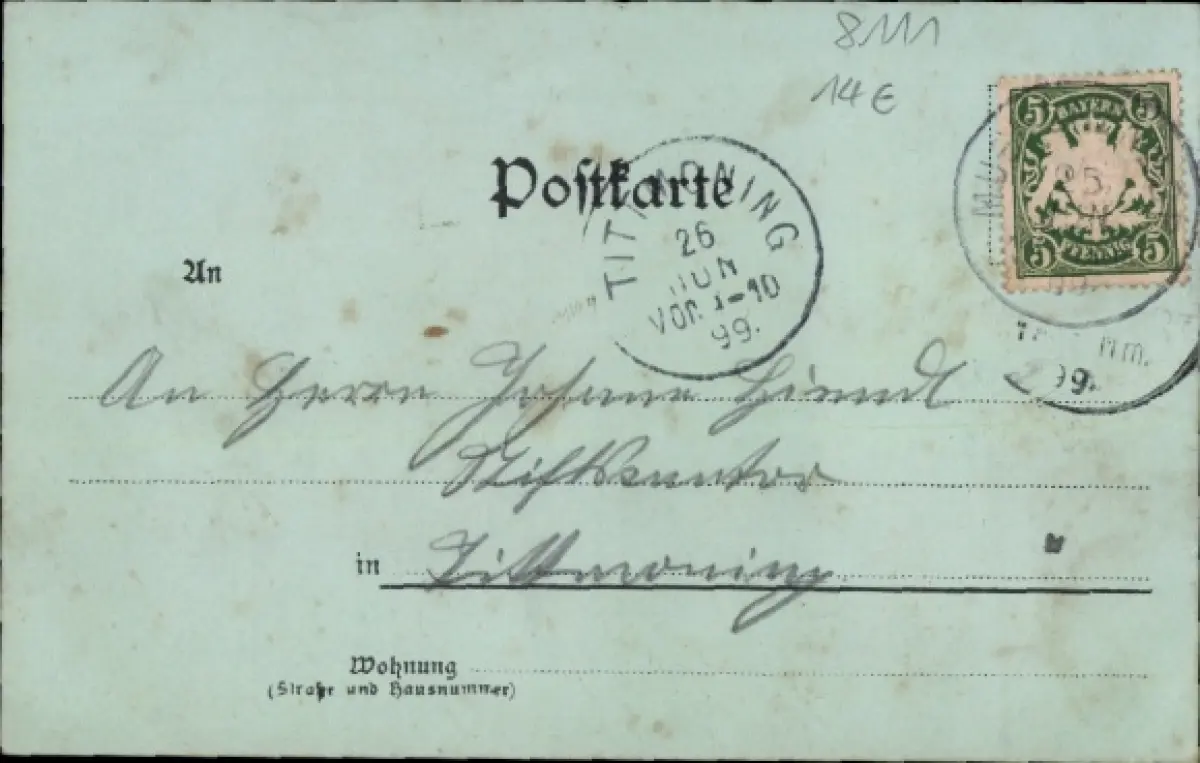 8111
14 €
5 BAYERN 5
25.
5 PFENNIG 5
Postkarte
TITTMONING
26
JUN
VOR. 9-10
99.
NM.
99.
An
An Herrn Johann
Stiftskantor
in Tittmoning
Wohnung
(Straße und Hausnummer)